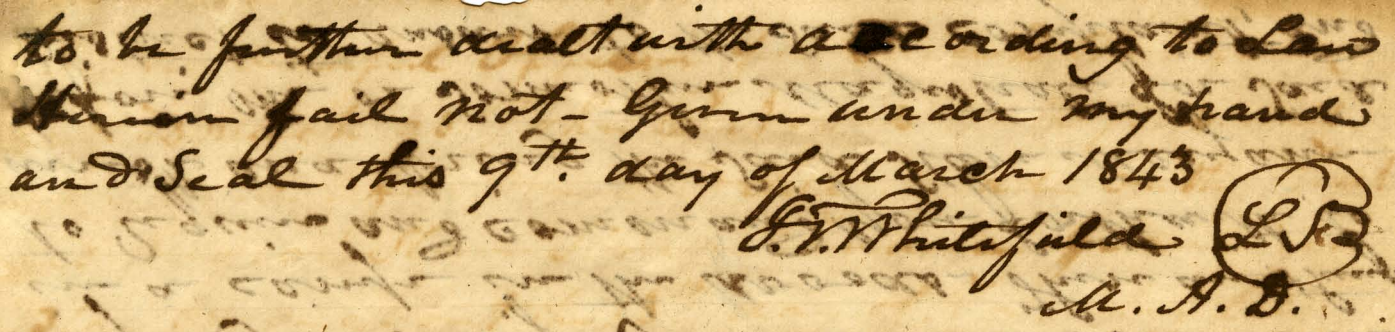 to be further dealt with according to Law
Herein fail not - Given under my hand
and Seal this 9th. day of March 1843
Whitfield LS
M. A. D.